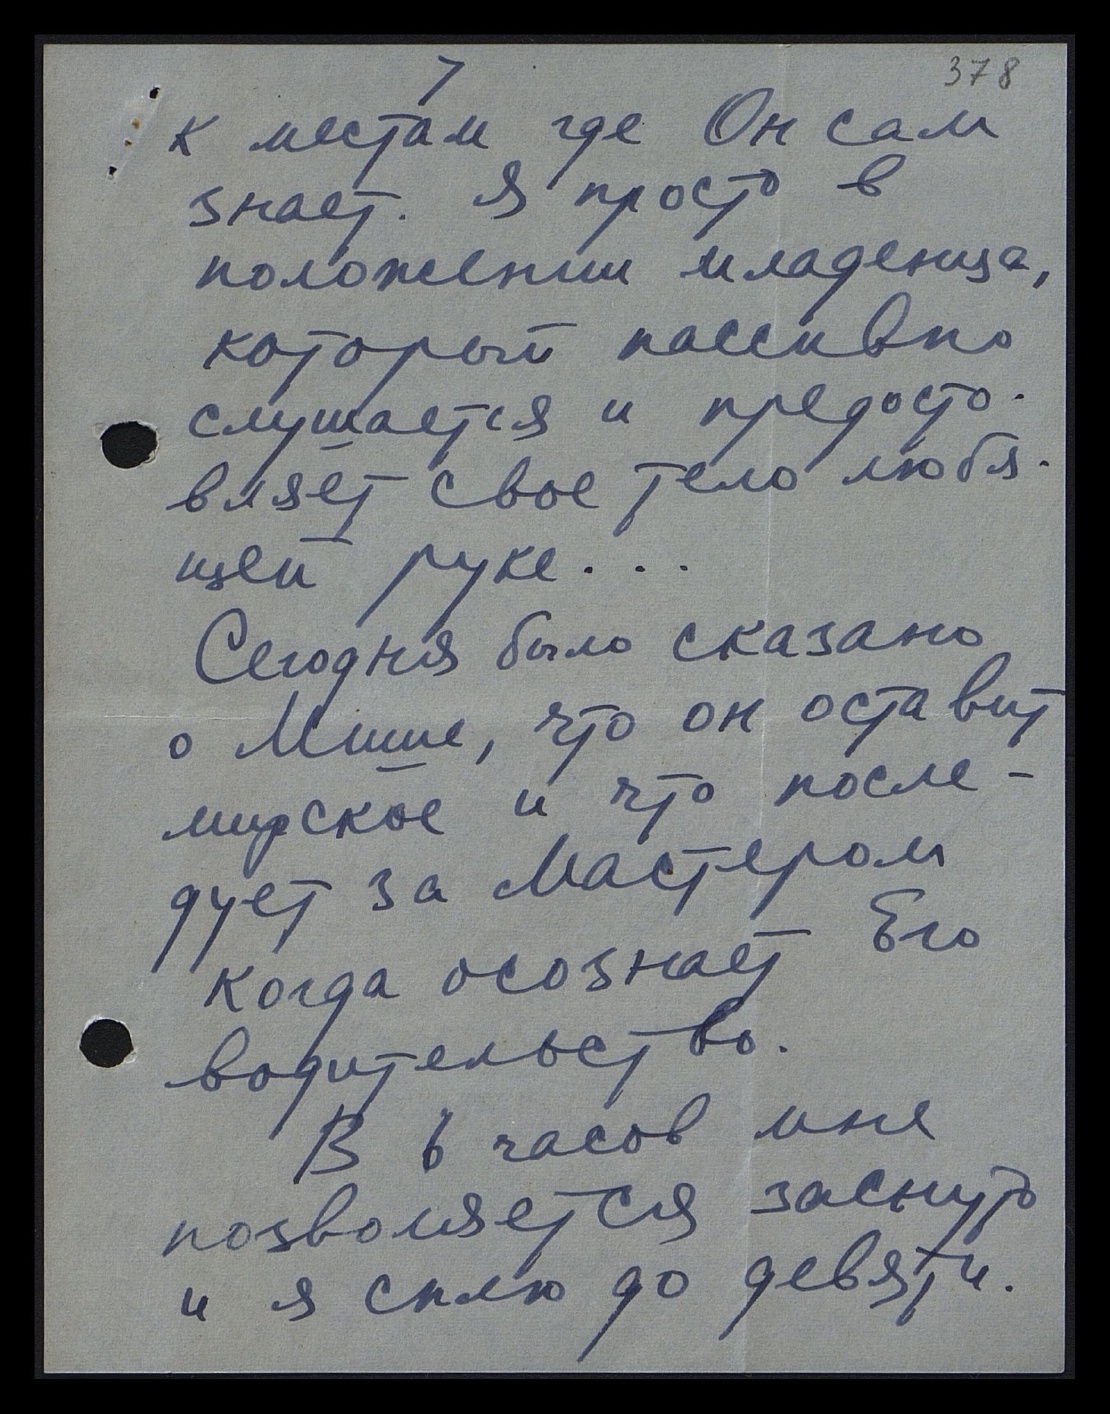 7
378
к местам где Он сам
знает. Я просто в
положении младенца,
который пассивно
слушается и предосто-
вляет свое тело любя-
щей руке...
Сегодня было сказано
о Мише, что он оставит
мирское и что после-
дует за Мастером
когда осознает Его
водительство.
В 6 часов мне
позволяется заснуть
и я сплю до девяти.